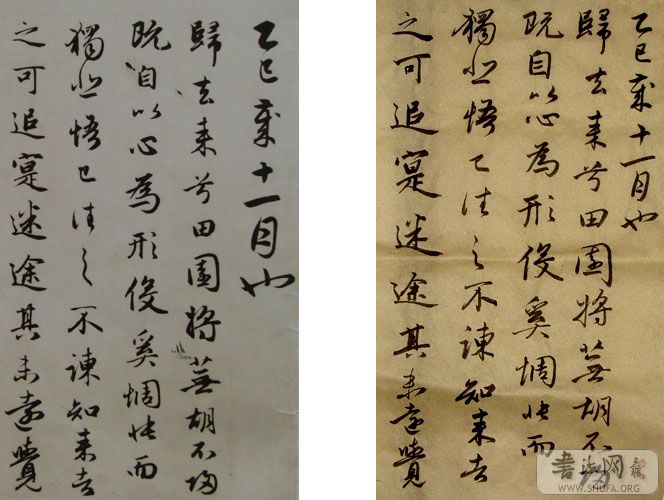 乙巳歲十一月也
歸去来兮田園将蕪胡不歸
既自以心為形役奚惆悵而
獨悲悟已往之不諫知来者
之可追寔迷途其未遠覺
乙巳歲十一月也
歸去来兮田園将蕪胡不
既自以心為形役奚惆悵而
獨悲悟已往之不諫知来者
之可追寔迷途其未遠覺
书法网
WWW.SHUFA.ORG